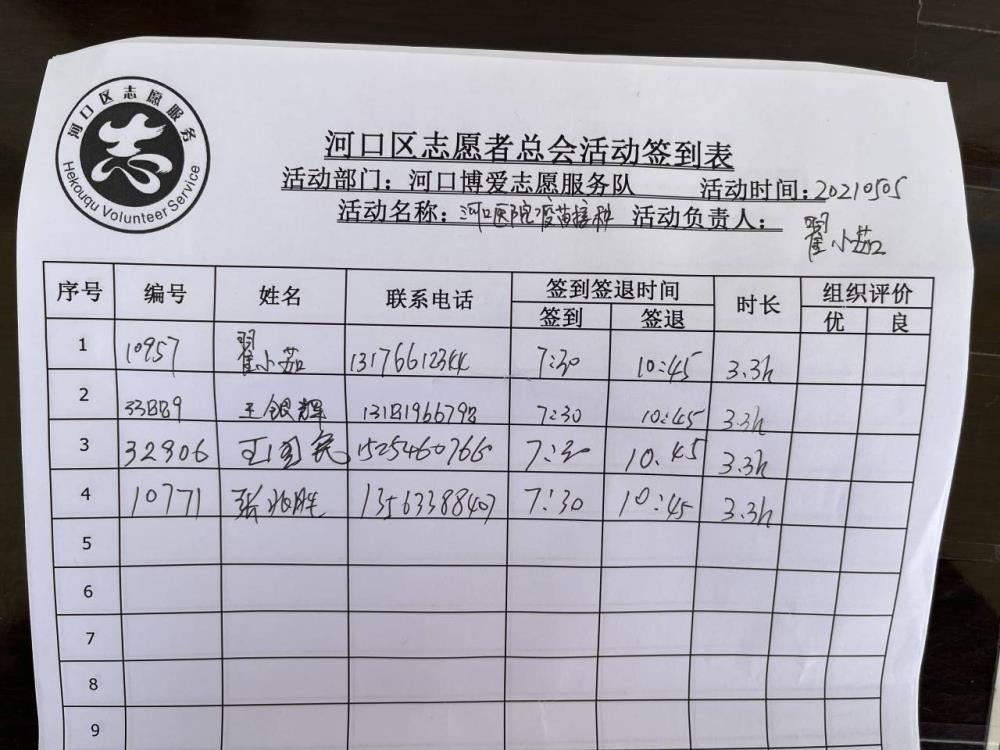 河口区志愿服务
志
Hekouqu Volunteer Service
河口区志愿者总会活动签到表
活动部门：河口博爱志愿服务队 活动时间：20210505
活动名称：河口医院疫苗接种 活动负责人：翟小茹
序号 编号 姓名 联系电话 签到签退时间 时长 组织评价
签到 签退 优 良
1 10957 翟小茹 13176612344 7:30 10:45 3.3h
2 33889 王银辉 13181966798 7:30 10:45 3.3h
3 32906 王国民 1525460766 7:30 10:45 3.3h
4 10771 张兆胜 13563388407 7:30 10:45 3.3h
5
6
7
8
9